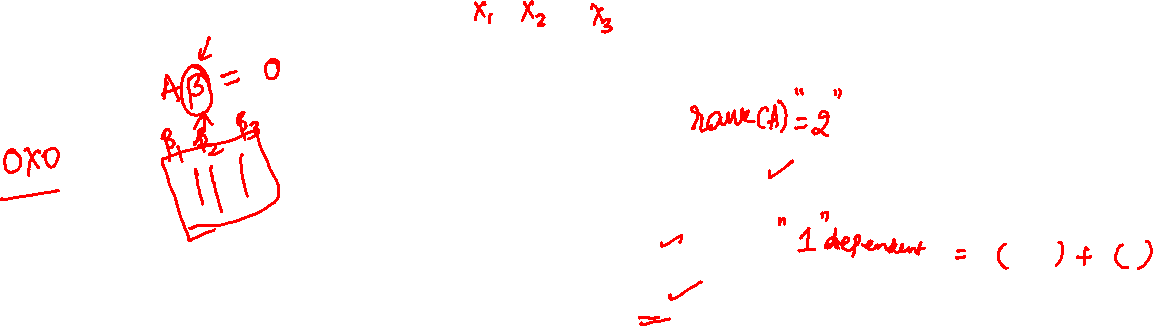 x₁ x₂ x₃
Aβ = 0
β₁ β₂ β₃
rank(A) = "2"
0x0
"1" dependent = ( ) + ( )